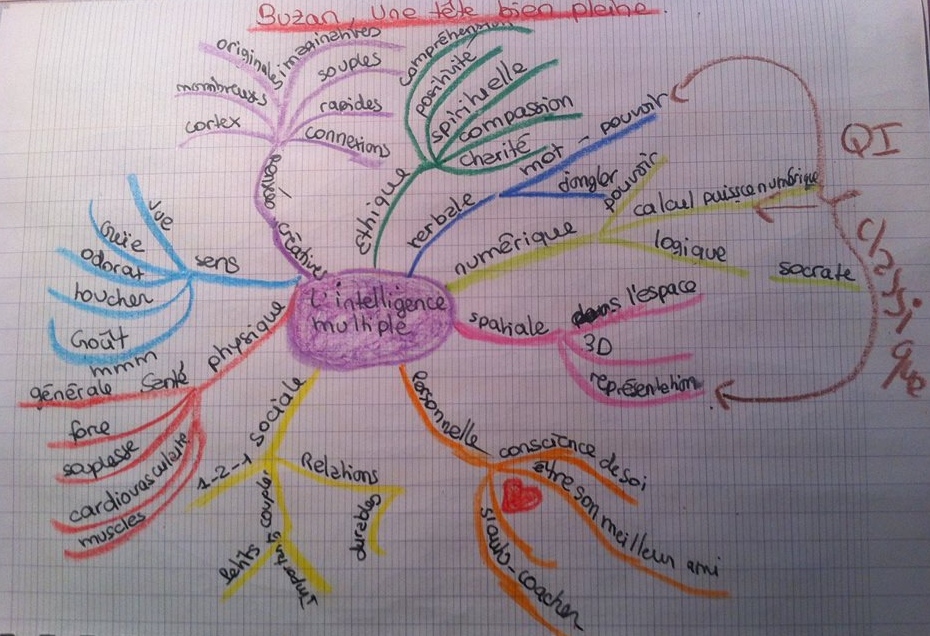 Buzan, Une tête bien pleine.
L'intelligence
multiple
créatives
originales
imaginantes
souples
rapides
connexions
nombreuses
cortex
Ethique
compréhension
positivité
spirituelle
compassion
charité
verbale
mot - pouvoir
jongler
numérique
pouvoir
calcul puissce numérique
logique
socrate
spatiale
dans l'espace
3D
représentation
QI
Classique
personnelle
conscience de soi
être son meilleur ami
s'auto-coacher
sociale
1-2-1
Relations
durables
couple
petits
physique
santé
générale
force
souplesse
cardiovasculaire
muscles
sens
vue
ouïe
odorat
toucher
Goût
mmm